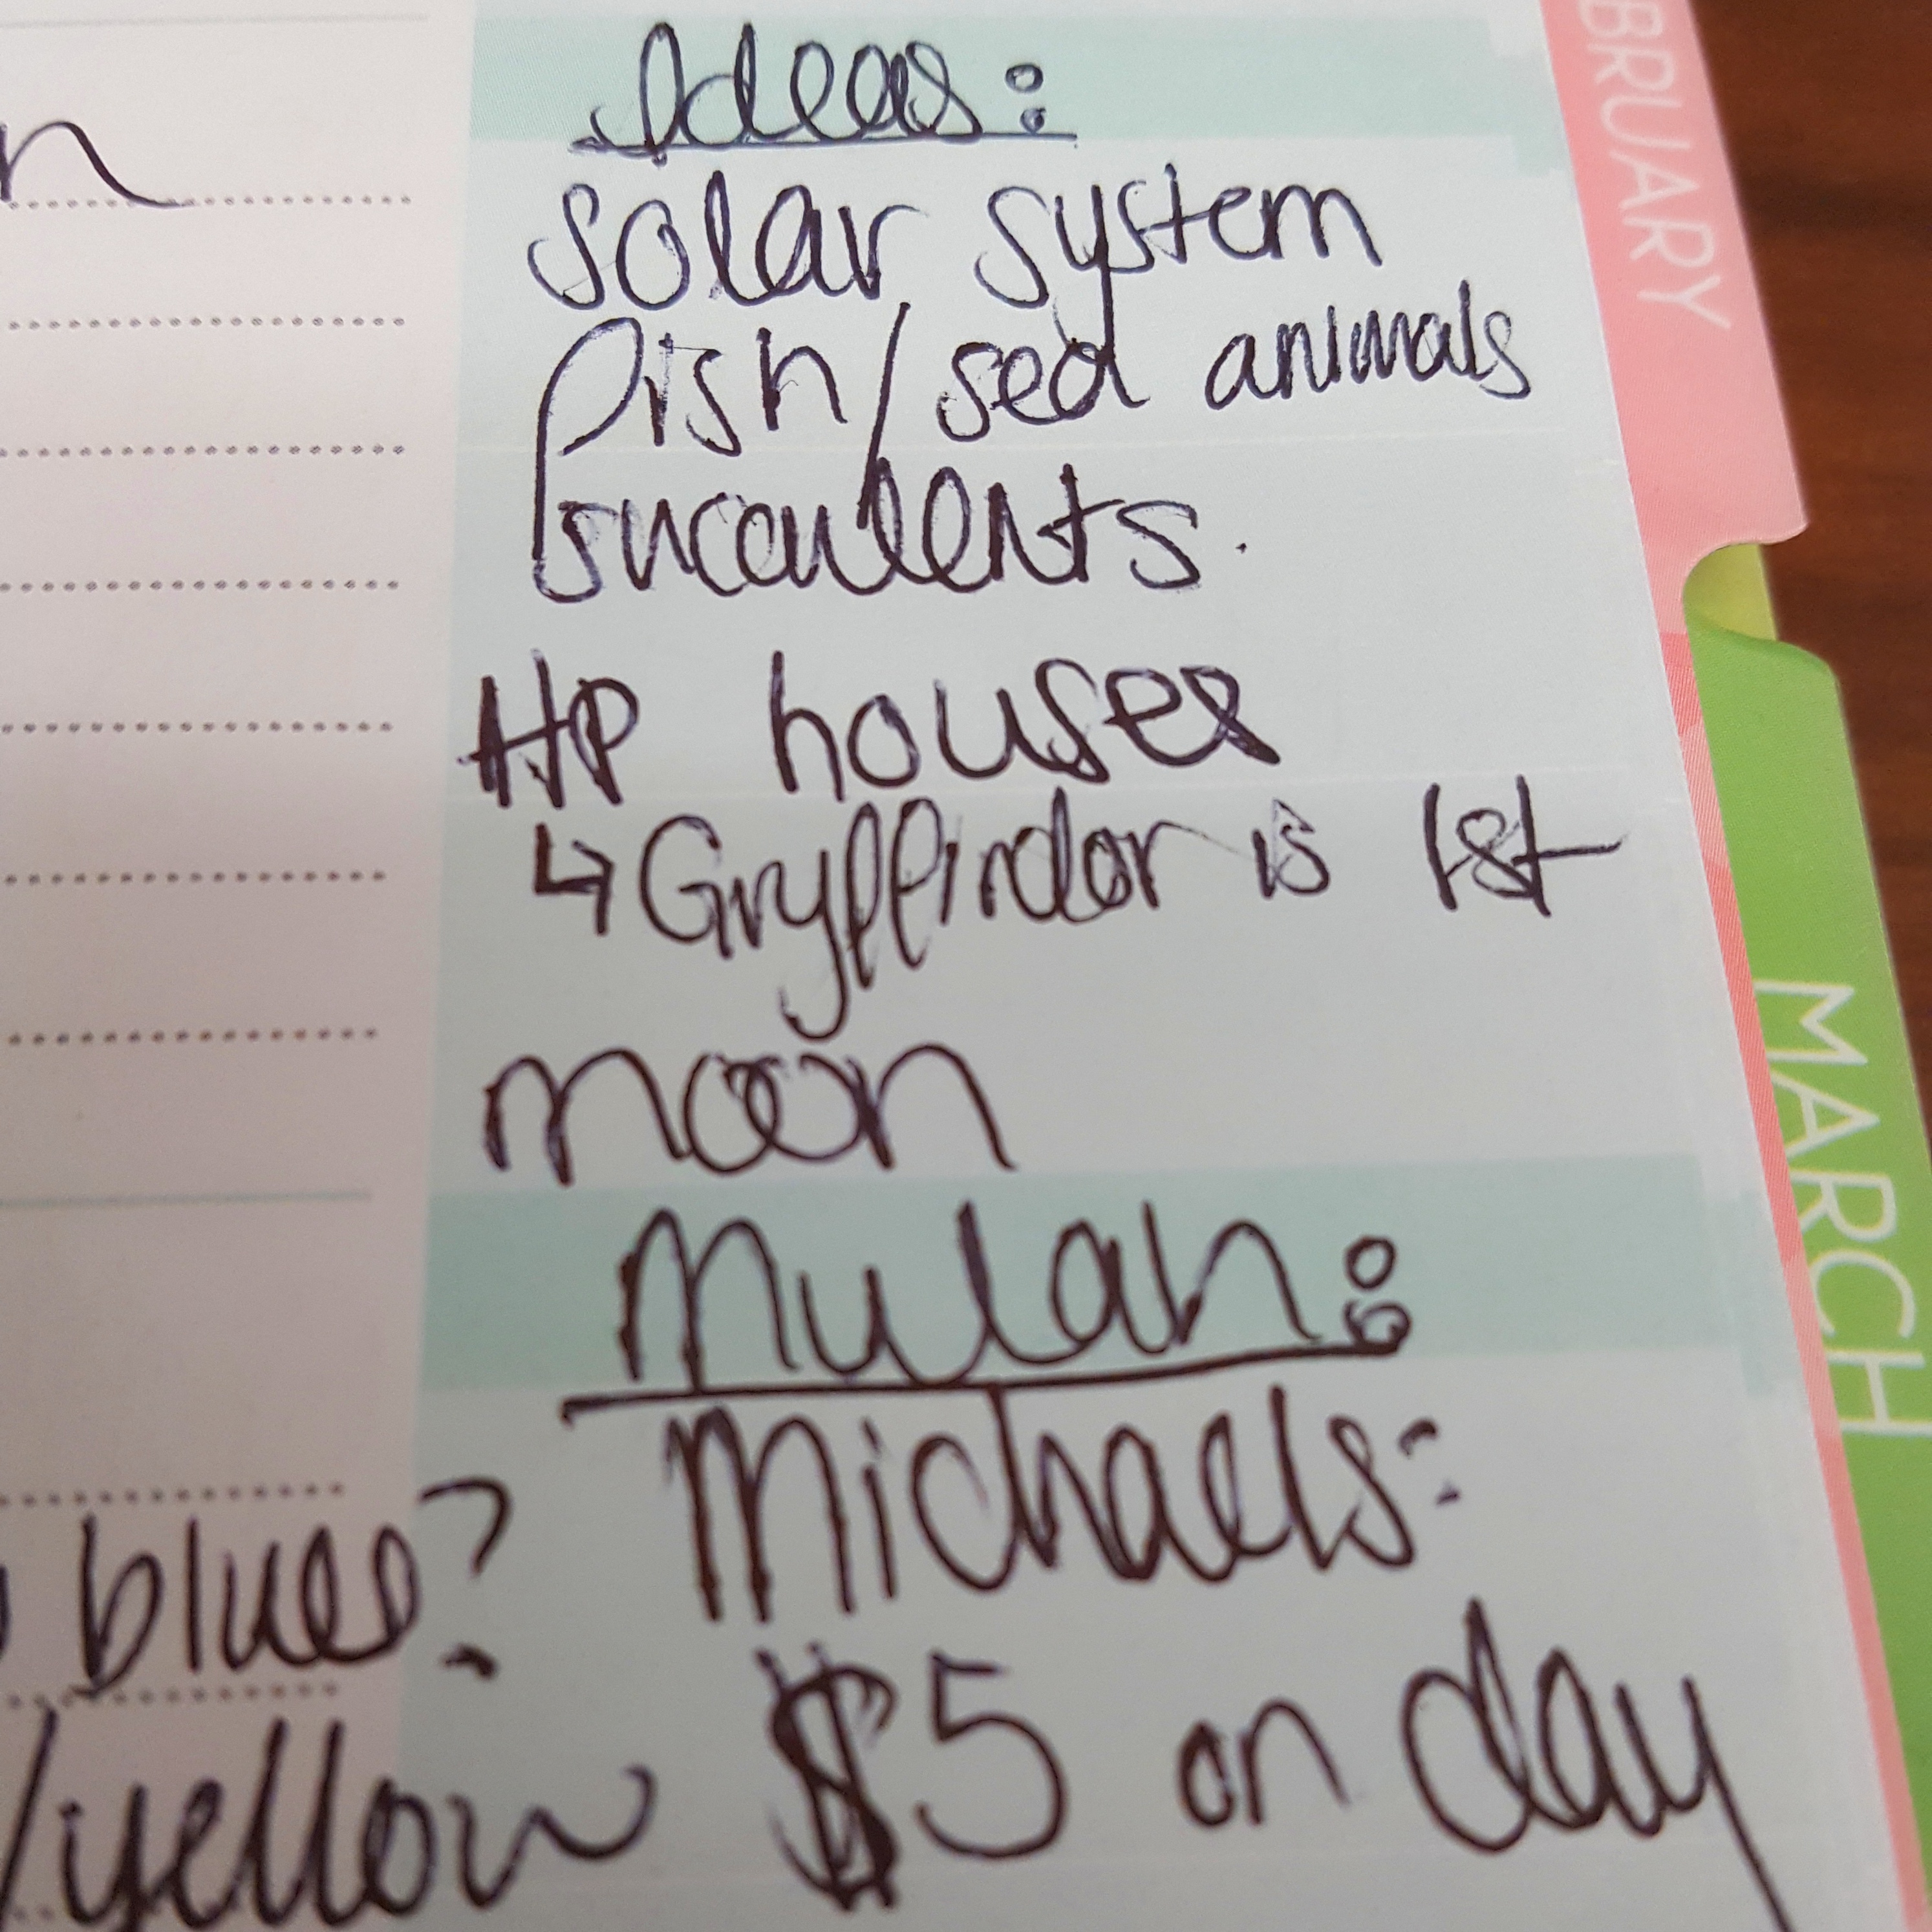 Ideas:
solar system
fish/sea animals
succulents.
HP houses
↳ Gryffindor is 1st
moon
Mulan:
Michaels:
blues?
/yellow $5 on day
BRUARY
MARCH